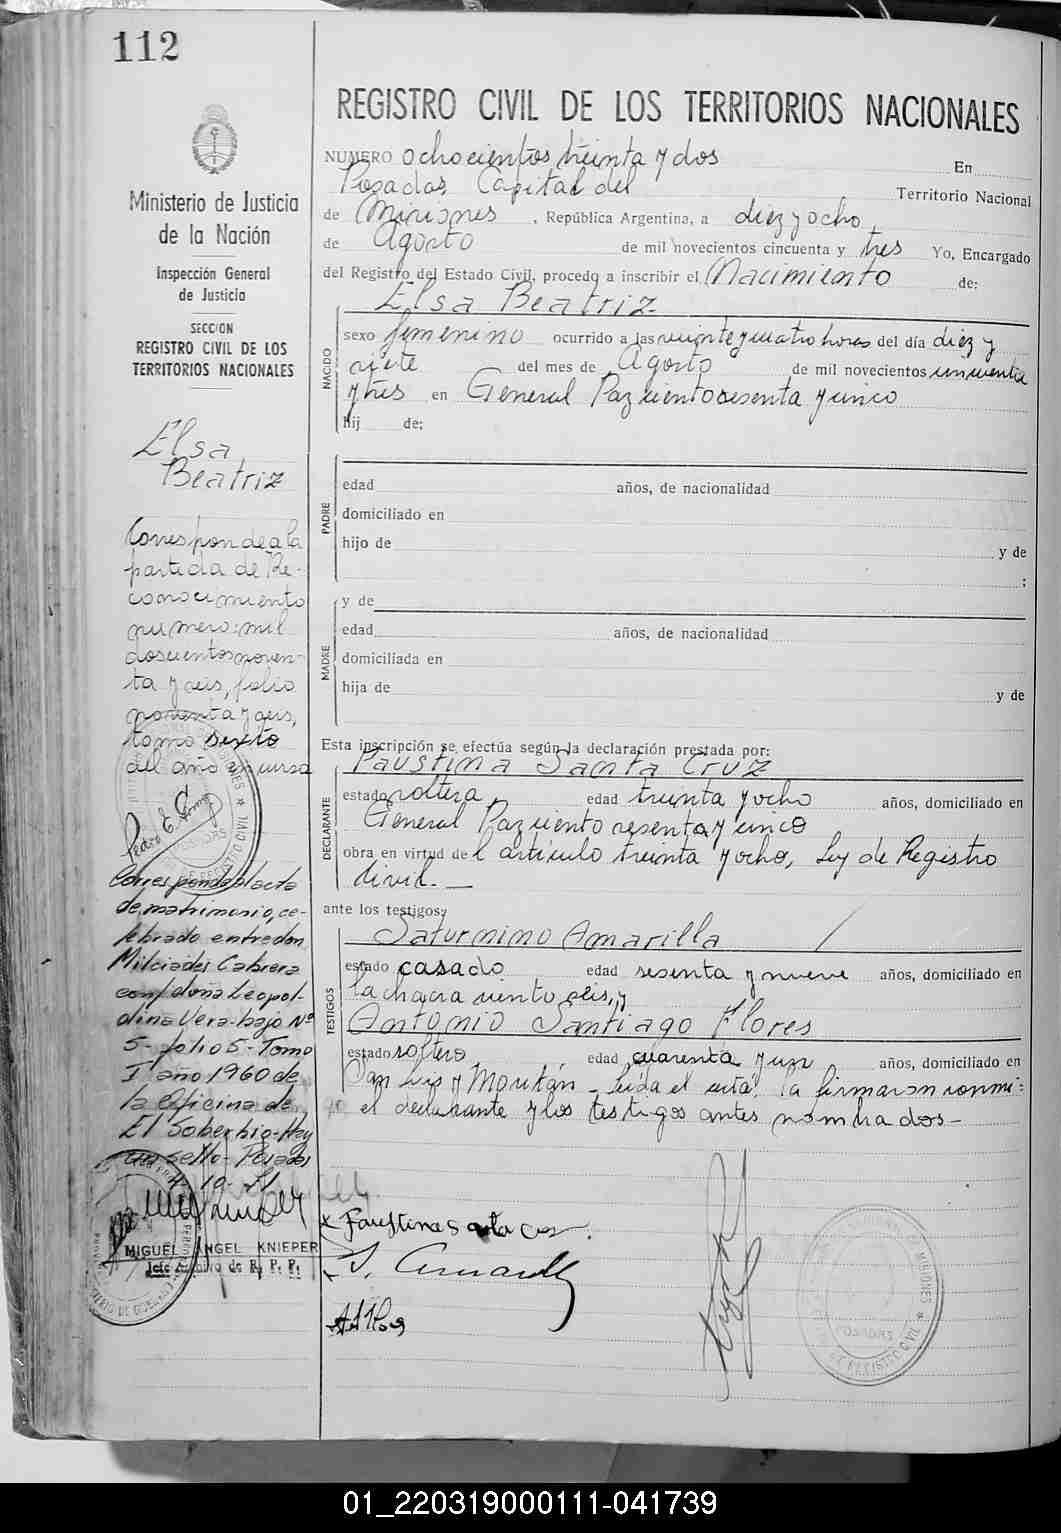 112
REGISTRO CIVIL DE LOS TERRITORIOS NACIONALES
Ministerio de Justicia
de la Nación
Inspección General
de Justicia
SECCION
REGISTRO CIVIL DE LOS
TERRITORIOS NACIONALES
NUMERO ochocientos treinta y dos En
Posadas, Capital del Territorio Nacional
de Misiones , República Argentina, a diez y ocho
de Agosto de mil novecientos cincuenta y tres Yo, Encargado
del Registro del Estado Civil, procedo a inscribir el Nacimiento de:
Elsa Beatriz.
NACIDO
sexo femenino ocurrido a las veinte y cuatro horas del día diez y
siete del mes de Agosto de mil novecientos cincuenta
y tres en General Paz ciento sesenta y cinco
hij de:
PADRE
edad años, de nacionalidad
domiciliado en
hijo de y de
;
MADRE
y de
edad años, de nacionalidad
domiciliada en
hija de y de
Esta inscripción se efectúa según la declaración prestada por:
DECLARANTE
Faustina Santa Cruz
estado soltera, edad treinta y ocho años, domiciliado en
General Paz ciento sesenta y cinco
obra en virtud del artículo treinta y ocho, Ley de Registro
Civil. —
ante los testigos:
TESTIGOS
Saturnino Amarilla
estado casado edad sesenta y nueve años, domiciliado en
la chacra ciento seis, y
Antonio Santiago Flores
estado soltero edad cuarenta y un años, domiciliado en
San Luis y Moritán - leída el acta, la firmaron conmi:
go el declarante y los testigos antes nombrados-
Elsa
Beatriz
Corresponde a la
partida de Re-
conocimiento
numero: mil
doscientos noven-
ta y seis, folio
noventa y seis,
tomo sexto
del año en curso
Corresponde al acta
de matrimonio, ce-
lebrado entre don
Milciades Cabrera
con doña Leopol-
dina Vera bajo Nº
5- folio 5- Tomo
I año 1960 de
la Oficina de
El Soberbio- Hay
un sello- Posadas
MIGUEL ANGEL KNIEPER
de R. P. P.
x Faustina Santa Cruz.
S. Amarilla
POSADAS
01_220319000111-041739